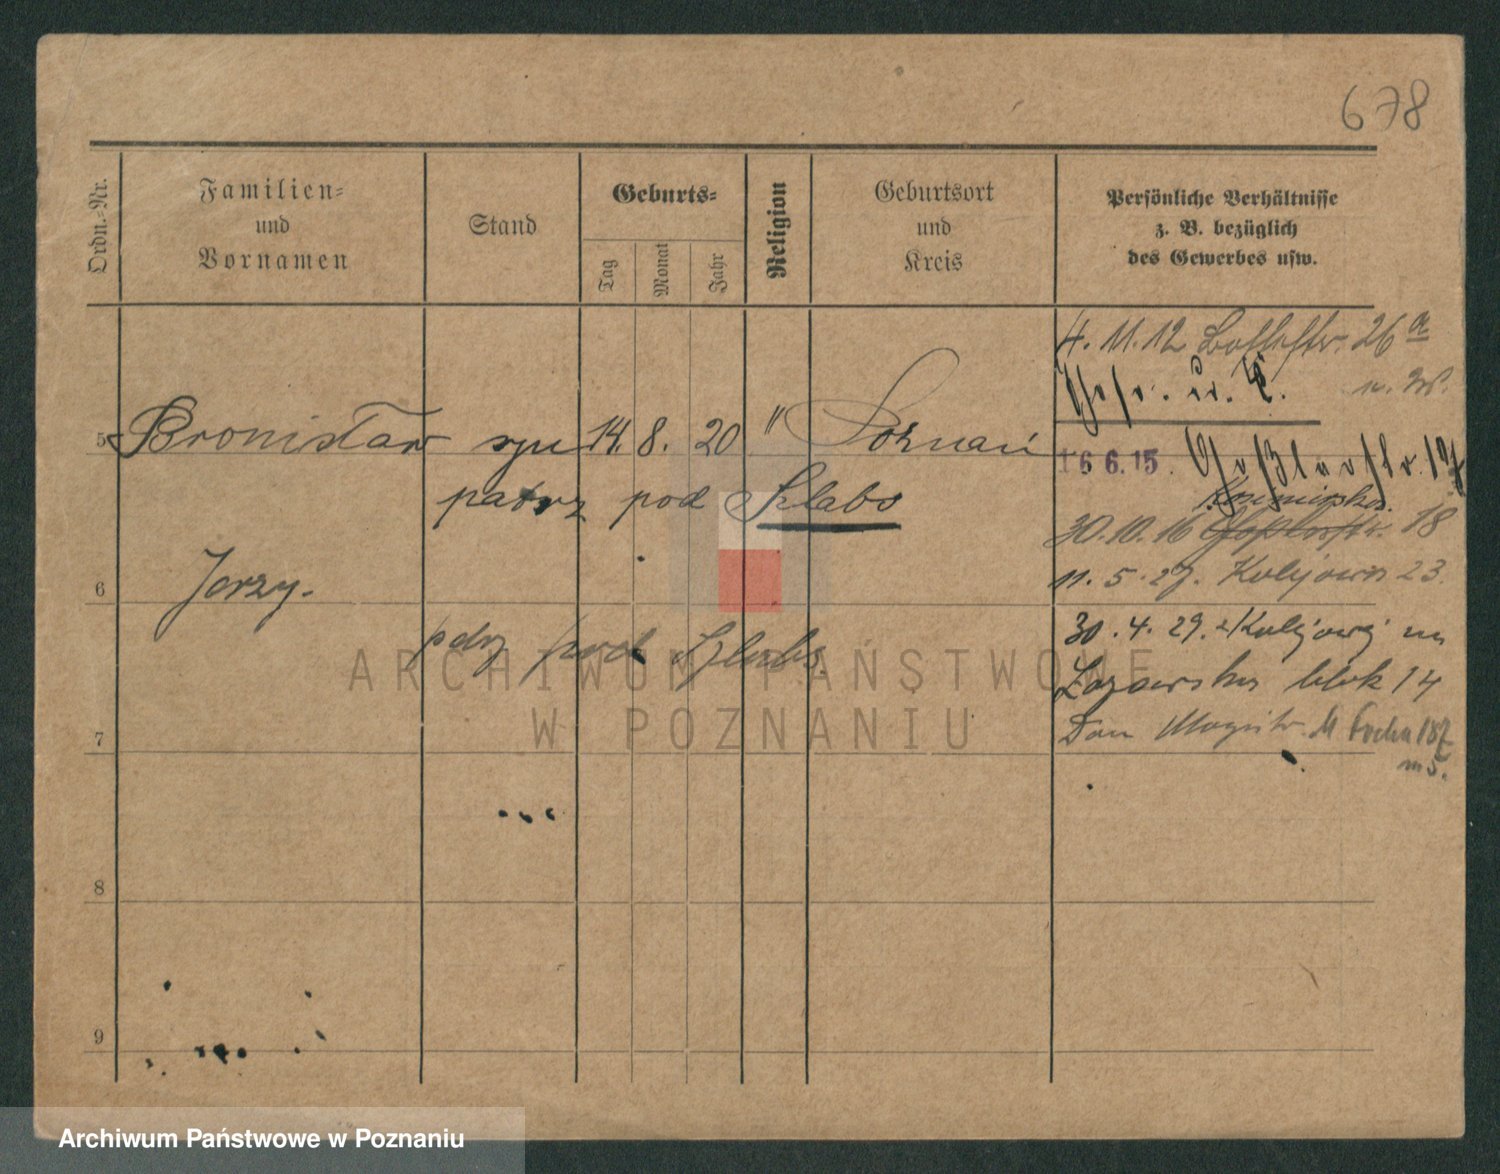 678
Ordn.-Nr.
Familien-
und
Vornamen
Stand
Geburts-
Tag
Monat
Jahr
Religion
Geburtsort
und
Kreis
Persönliche Verhältnisse
z. B. bezüglich
des Gewerbes usw.
4. 11. 12 26 a
5 Bronisław syn 14. 8. 20 " Poznań
16 6. 15.
patrz pod Szlabs
30. 10. 16 18
11. 5. 27. Kolejowa 23.
6 Jerzy.
30. 4. 29. z Kolejowej na
patrz pod Szlabs.
blok 14
7
Dom M Focha 187
m 5.
8
9
ARCHIWUM PAŃSTWOWE
W POZNANIU
Archiwum Państwowe w Poznaniu